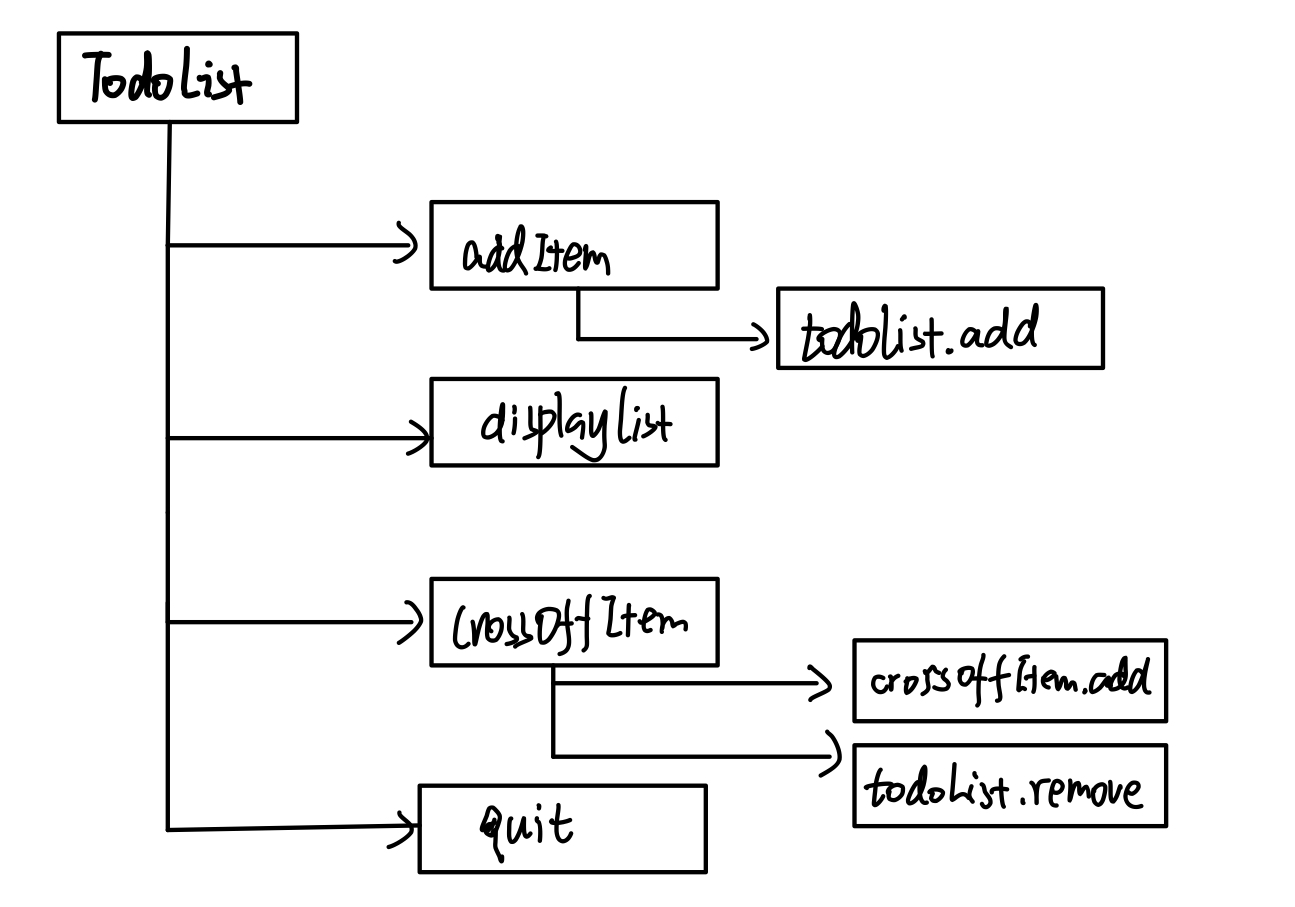 TodoList
addItem
todoList.add
displayList
CrossOffItem
crossOffItem.add
todoList.remove
quit